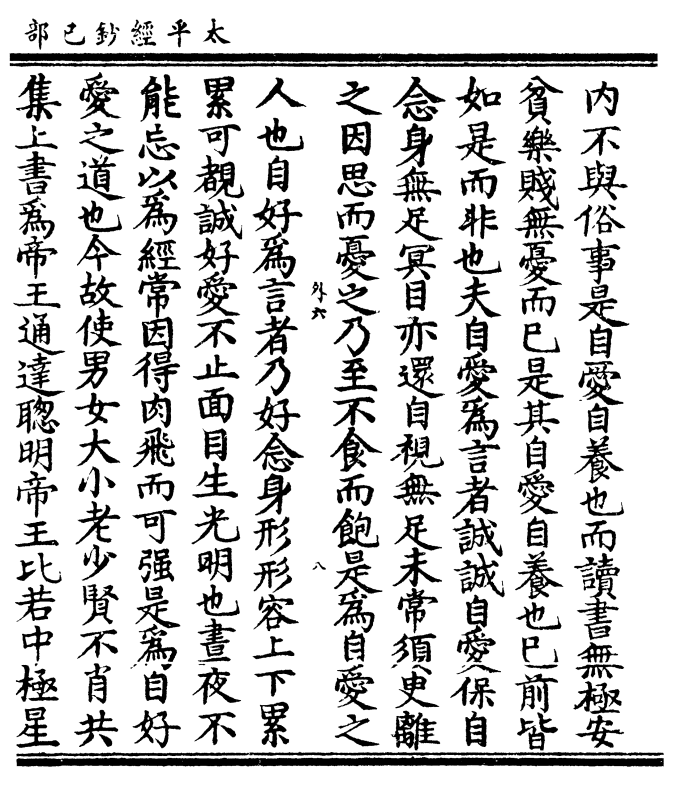 太平經鈔已部
内不與俗事是自愛自養也而讀書無極安
貧樂賤無憂而已是其自愛自養也已前皆
如是而非也夫自愛爲言者誠誠自愛保自
念身無足冥目亦還自視無足未常須臾離
之因思而憂之乃至不食而飽是爲自愛之
外六
八
人也自好爲言者乃好念身形形容上下累
累可覩誠好愛不止面目生光明也晝夜不
能忘以爲經常因得肉飛而可强是爲自好
愛之道也今故使男女大小老少賢不肖共
集上書爲帝王通達聰明帝王比若中極星